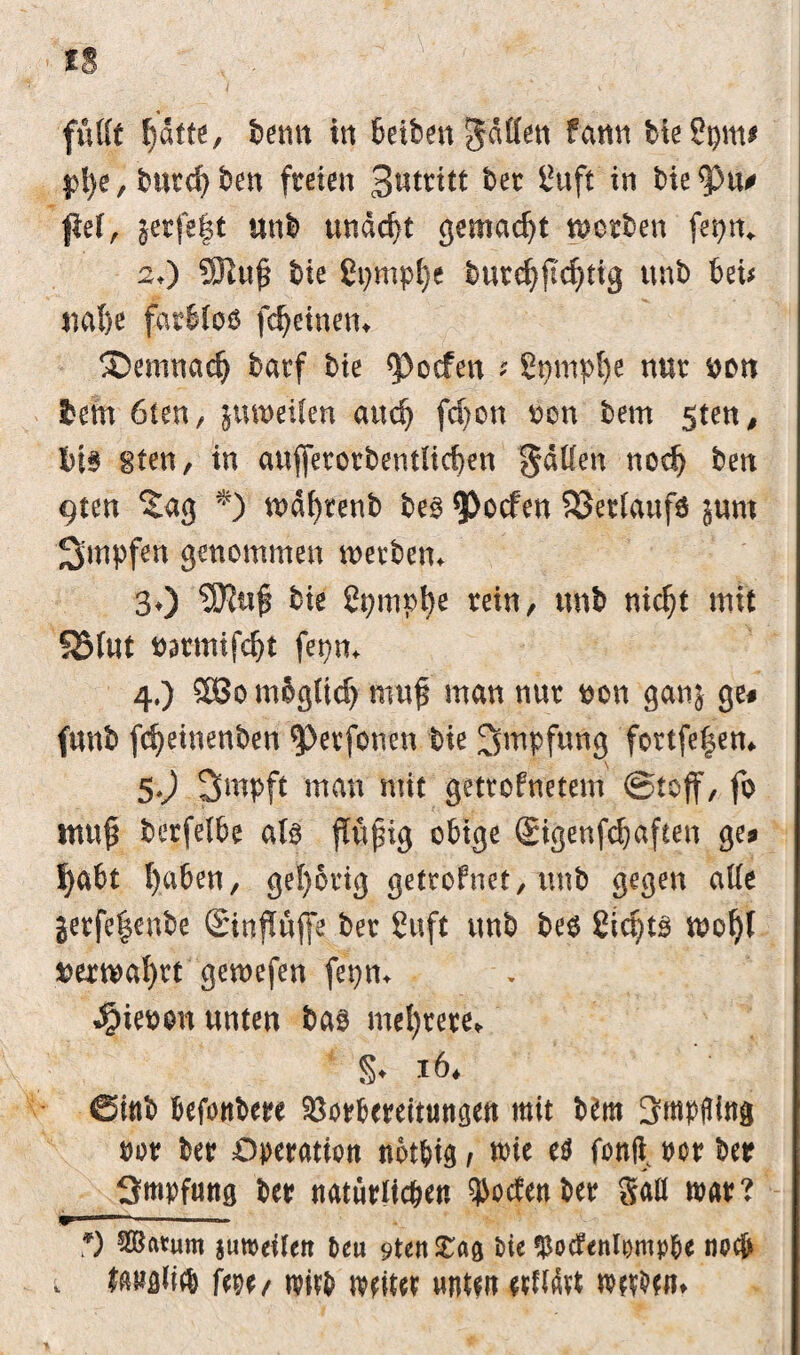 18
füllt hätte, denn in beiden Fällen kann die Lym⸗
phe, durch den freien Zutritt der Luft in die Pu⸗
stel, zersetzt und unächt gemacht worden seyn.
2.) Muß die Lymphe durchsichtig und bei⸗
nahe farblos scheinen.
Demnach darf die Pocken ⸗ Lymphe nur von
dem 6ten, zuweilen auch schon von dem 5ten,
bis 8ten, in ausserordentlichen Fällen noch den
9ten Tag *) während des Pocken Verlaufs zum
Impfen genommen werden.
3.) Muß die Lymphe rein, und nicht mit
Blut vermischt seyn.
4.) Wo möglich muß man nur von ganz ge⸗
sund scheinenden Personen die Impfung fortsetzen.
5.) Impft man mit getroknetem Stoff, so
muß derselbe als flüßig obige Eigenschaften ge⸗
habt haben, gehörig getroknet, und gegen alle
zersetzende Einflüsse der Luft und des Lichts wohl
verwahrt gewesen seyn.
Hievon unten das mehrere.
§. 16.
Sind besondere Vorbereitungen mit dem Impfling
vor der Operation nöthig, wie es sonst vor der
Impfung der natürlichen Pocken der Fall war?
*) Warum zuweilen den 9ten Tag die Pockenlymphe noch
tauglich seye, wird weiter unten erklärt werden.